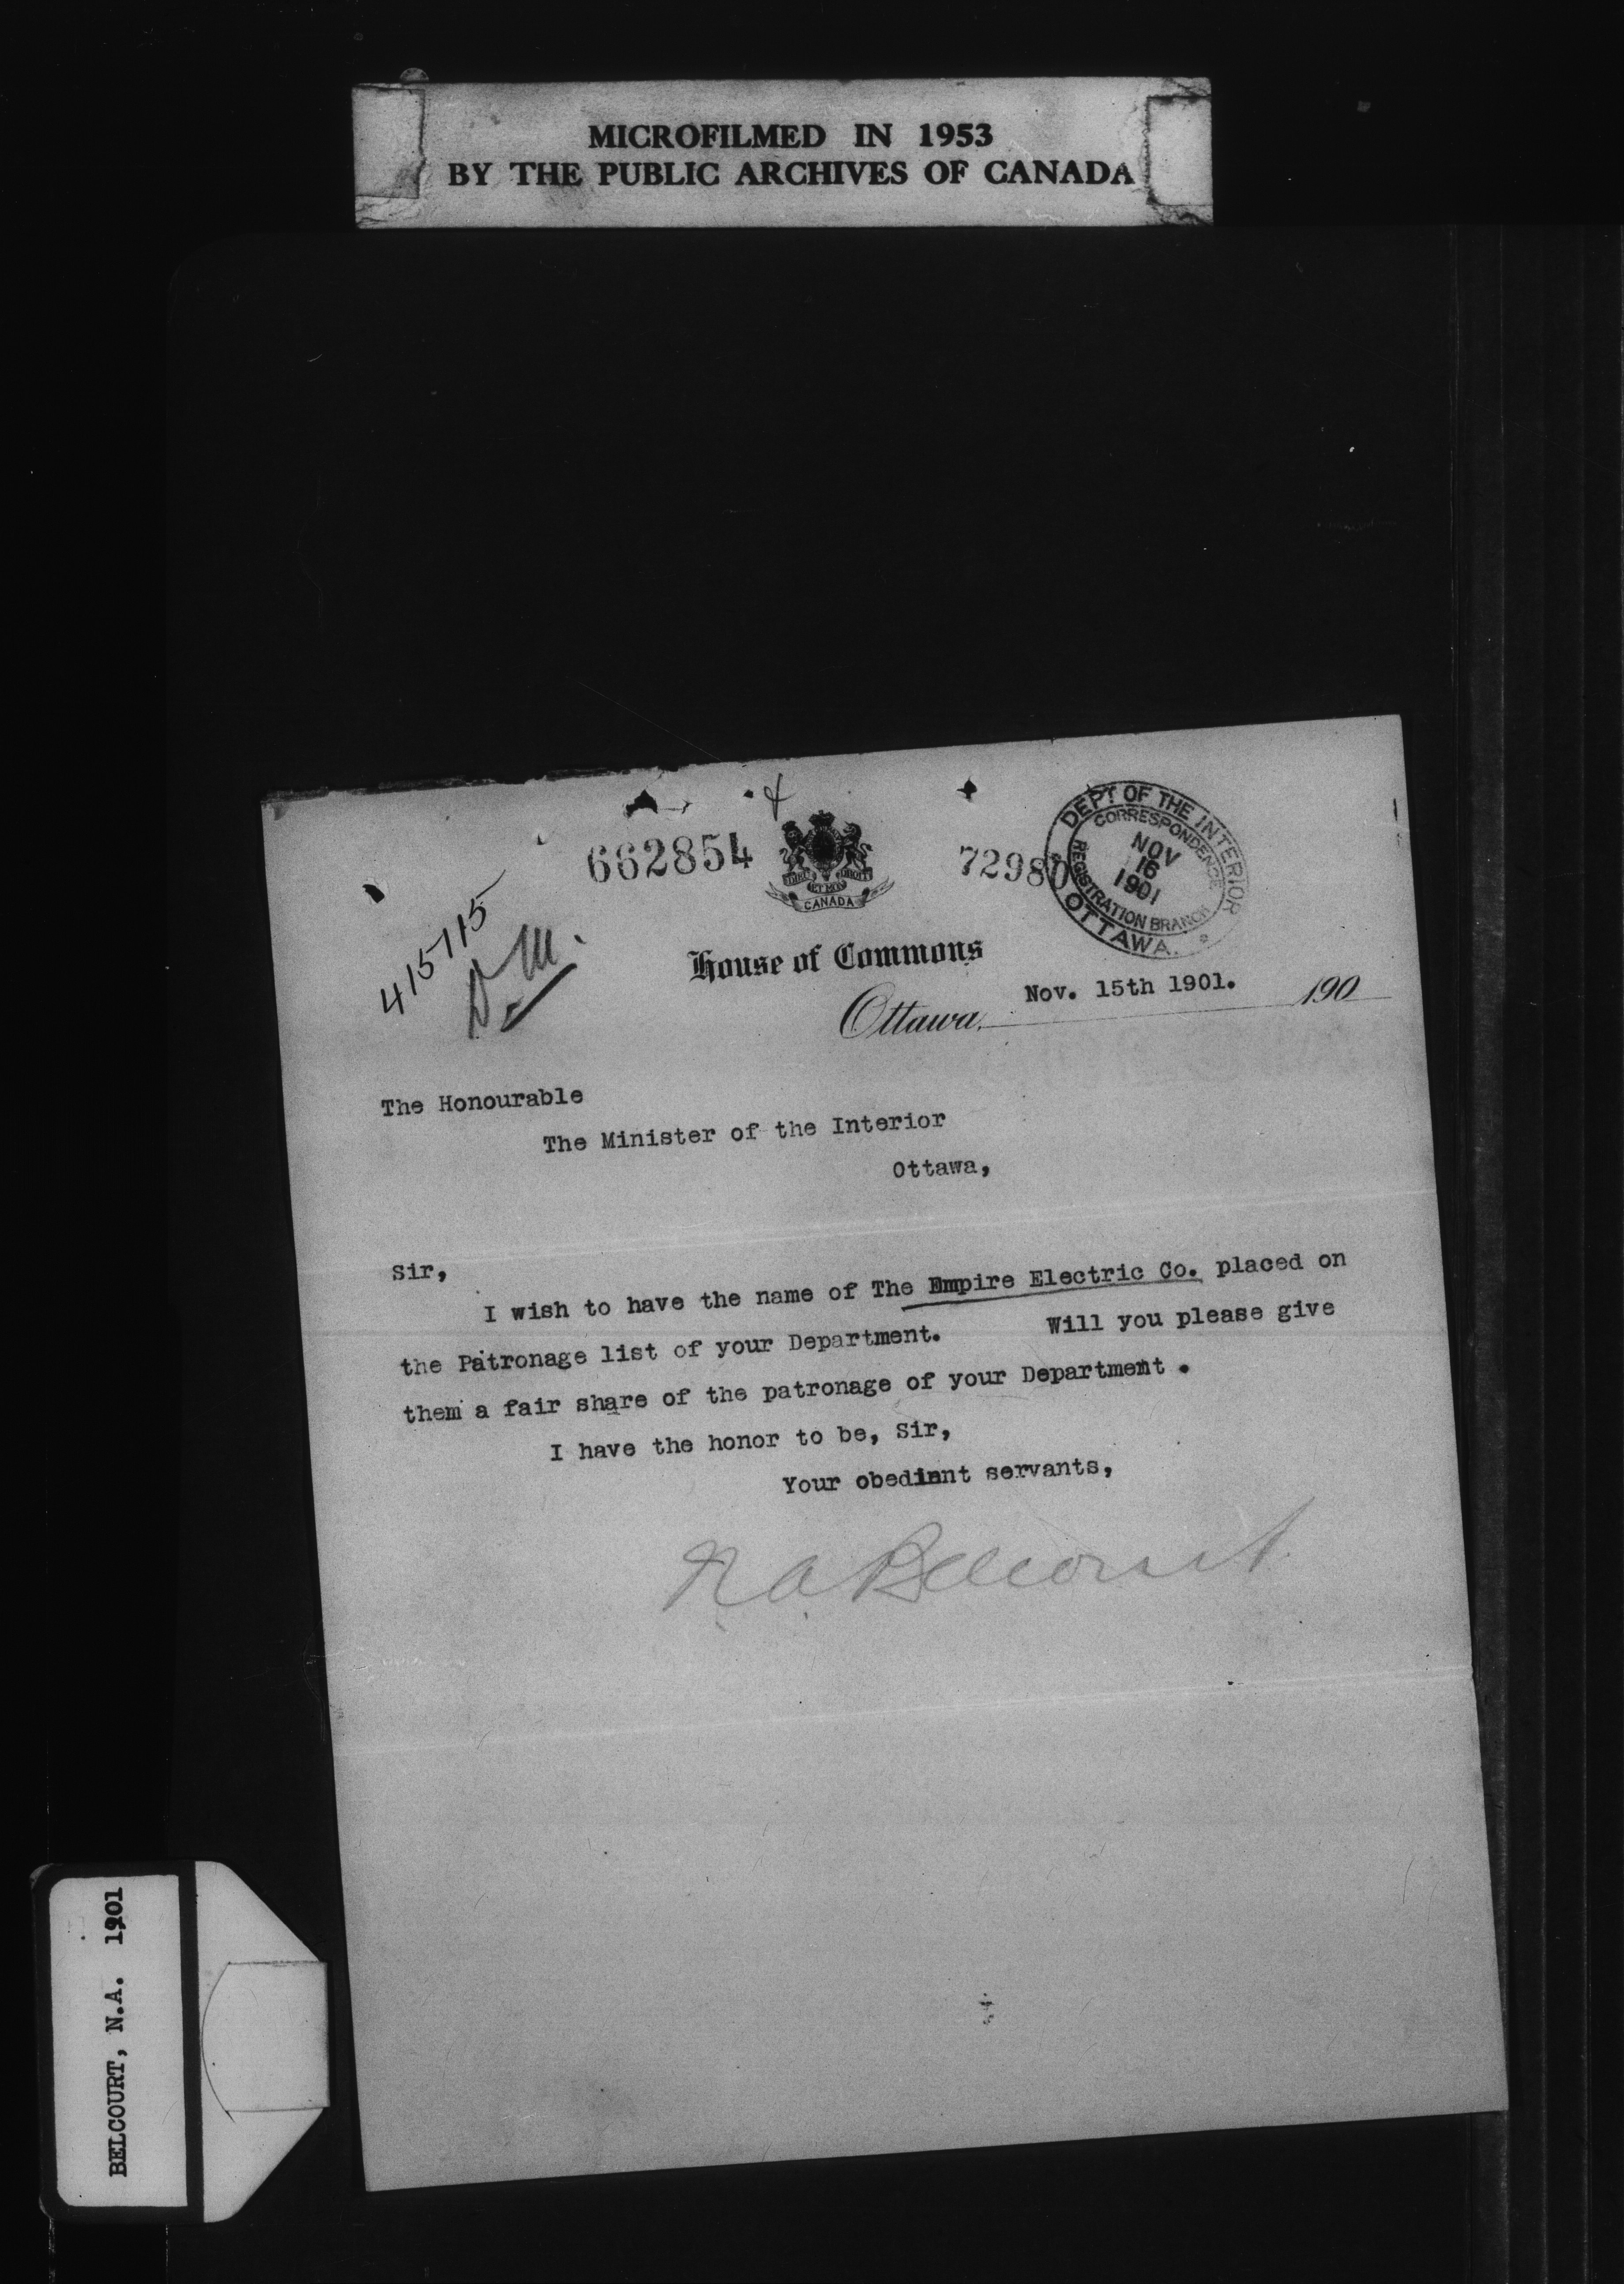 MICROFILMED IN 1953
BY THE PUBLIC ARCHIVES OF CANADA
662854
72980
DEPT OF THE INTERIOR
CORRESPONDENCE
NOV
16
1901
REGISTRATION BRANCH
OTTAWA.
DIEU ET MON DROIT
CANADA
415115
D. M.
House of Commons
Ottawa, Nov. 15th 1901. 190
The Honourable
The Minister of the Interior
Ottawa,
Sir,
I wish to have the name of The Empire Electric Co. placed on
the Patronage list of your Department. Will you please give
them a fair share of the patronage of your Department.
I have the honor to be, Sir,
Your obediant servants,
N.A. Belcourt
BELCOURT, N.A. 1901